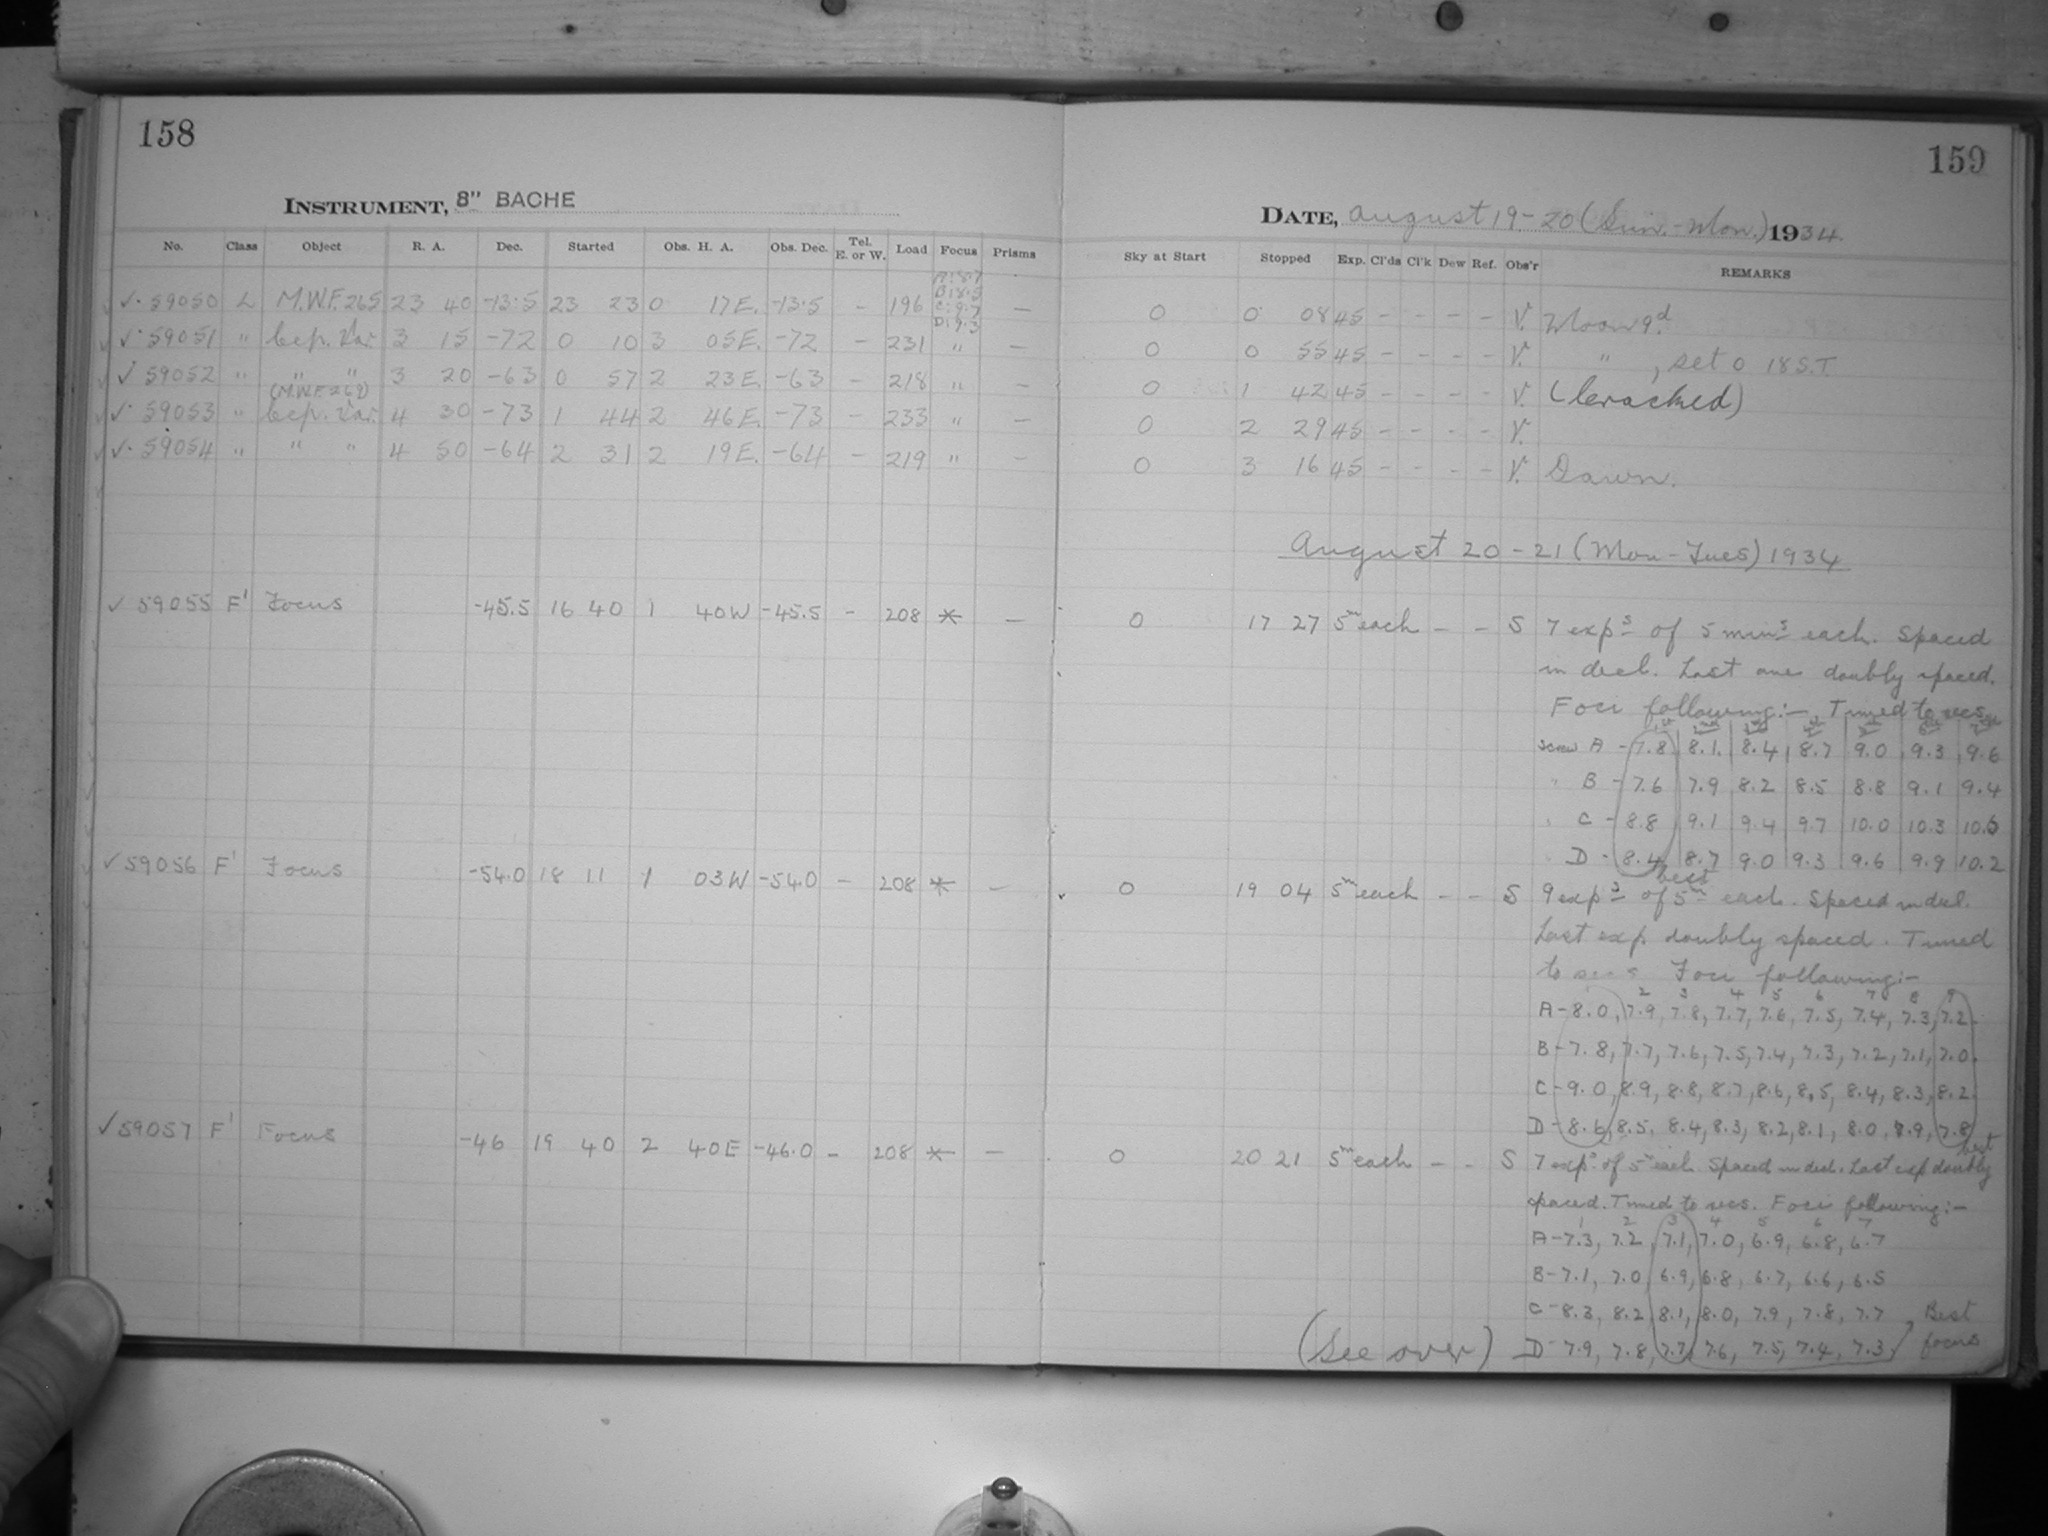 158
159
INSTRUMENT, 8" BACHE
DATE, August 19-20 (Sun.-Mon.) 1934.
No. Class Object R. A. Dec. Started Obs. H. A. Obs. Dec. Tel. E. or W. Load Focus Prisms Sky at Start Stopped Exp. Cl'ds Cl'k Dew Ref. Obs'r REMARKS
A: 8.7
B: 8.5
C: 9.7
D: 9.3
✓· 59050 L M.W.F. 265 23 40 -13.5 23 23 0 17E. -13.5 - 196 — 0 0 08 45 - - - - V. Moon 9d
✓· 59051 " Cep. Var. 3 15 -72 0 10 3 05E. -72 - 231 " — 0 0 55 45 - - - - V. " , set 0 18 S.T.
✓ 59052 " " " 3 20 -63 0 57 2 23E. -63 - 218 " - 0 1 42 45 - - - - V. (Cracked)
✓· 59053 " (M.W.F. 269) Cep. Var. 4 30 -73 1 44 2 46E. -73 - 233 " - 0 2 29 45 - - - - V.
✓· 59054 " " " 4 50 -64 2 31 2 19E. -64 - 219 " - 0 3 16 45 - - - - V. Dawn.
August 20-21 (Mon-Tues) 1934
✓ 59055 F' Focus -45.5 16 40 1 40W -45.5 - 208 * — 0 17 27 5m each - - S 7 exps of 5 mins each. Spaced
in decl. Last one doubly spaced.
Foci following:— Timed to secs
Screw A - 7.8 8.1 8.4 8.7 9.0 9.3 9.6
" B - 7.6 7.9 8.2 8.5 8.8 9.1 9.4
" C - 8.8 9.1 9.4 9.7 10.0 10.3 10.6
" D - 8.4 8.7 9.0 9.3 9.6 9.9 10.2
best
✓ 59056 F' Focus -54.0 18 11 1 03W -54.0 - 208 * — 0 19 04 5m each - - S 9 exps of 5m each. Spaced in decl.
Last exp doubly spaced. Timed
to secs Foci following:-
2 3 4 5 6 7 8 9
A-8.0, 7.9, 7.8, 7.7, 7.6, 7.5, 7.4, 7.3, 7.2
B-7.8, 7.7, 7.6, 7.5, 7.4, 7.3, 7.2, 7.1, 7.0
C-9.0, 8.9, 8.8, 8.7, 8.6, 8.5, 8.4, 8.3, 8.2
D-8.6, 8.5, 8.4, 8.3, 8.2, 8.1, 8.0, 7.9, 7.8
best
✓ 59057 F' Focus -46 19 40 2 40E -46.0 - 208 * — 0 20 21 5m each - - S 7 exps of 5m each Spaced in decl. Last exp doubly
spaced. Timed to secs. Foci following:—
1 2 3 4 5 6 7
A-7.3, 7.2, 7.1, 7.0, 6.9, 6.8, 6.7
B-7.1, 7.0, 6.9, 6.8, 6.7, 6.6, 6.5
C-8.3, 8.2, 8.1, 8.0, 7.9, 7.8, 7.7
D-7.9, 7.8, 7.7, 7.6, 7.5, 7.4, 7.3
Best
focus
(See over)